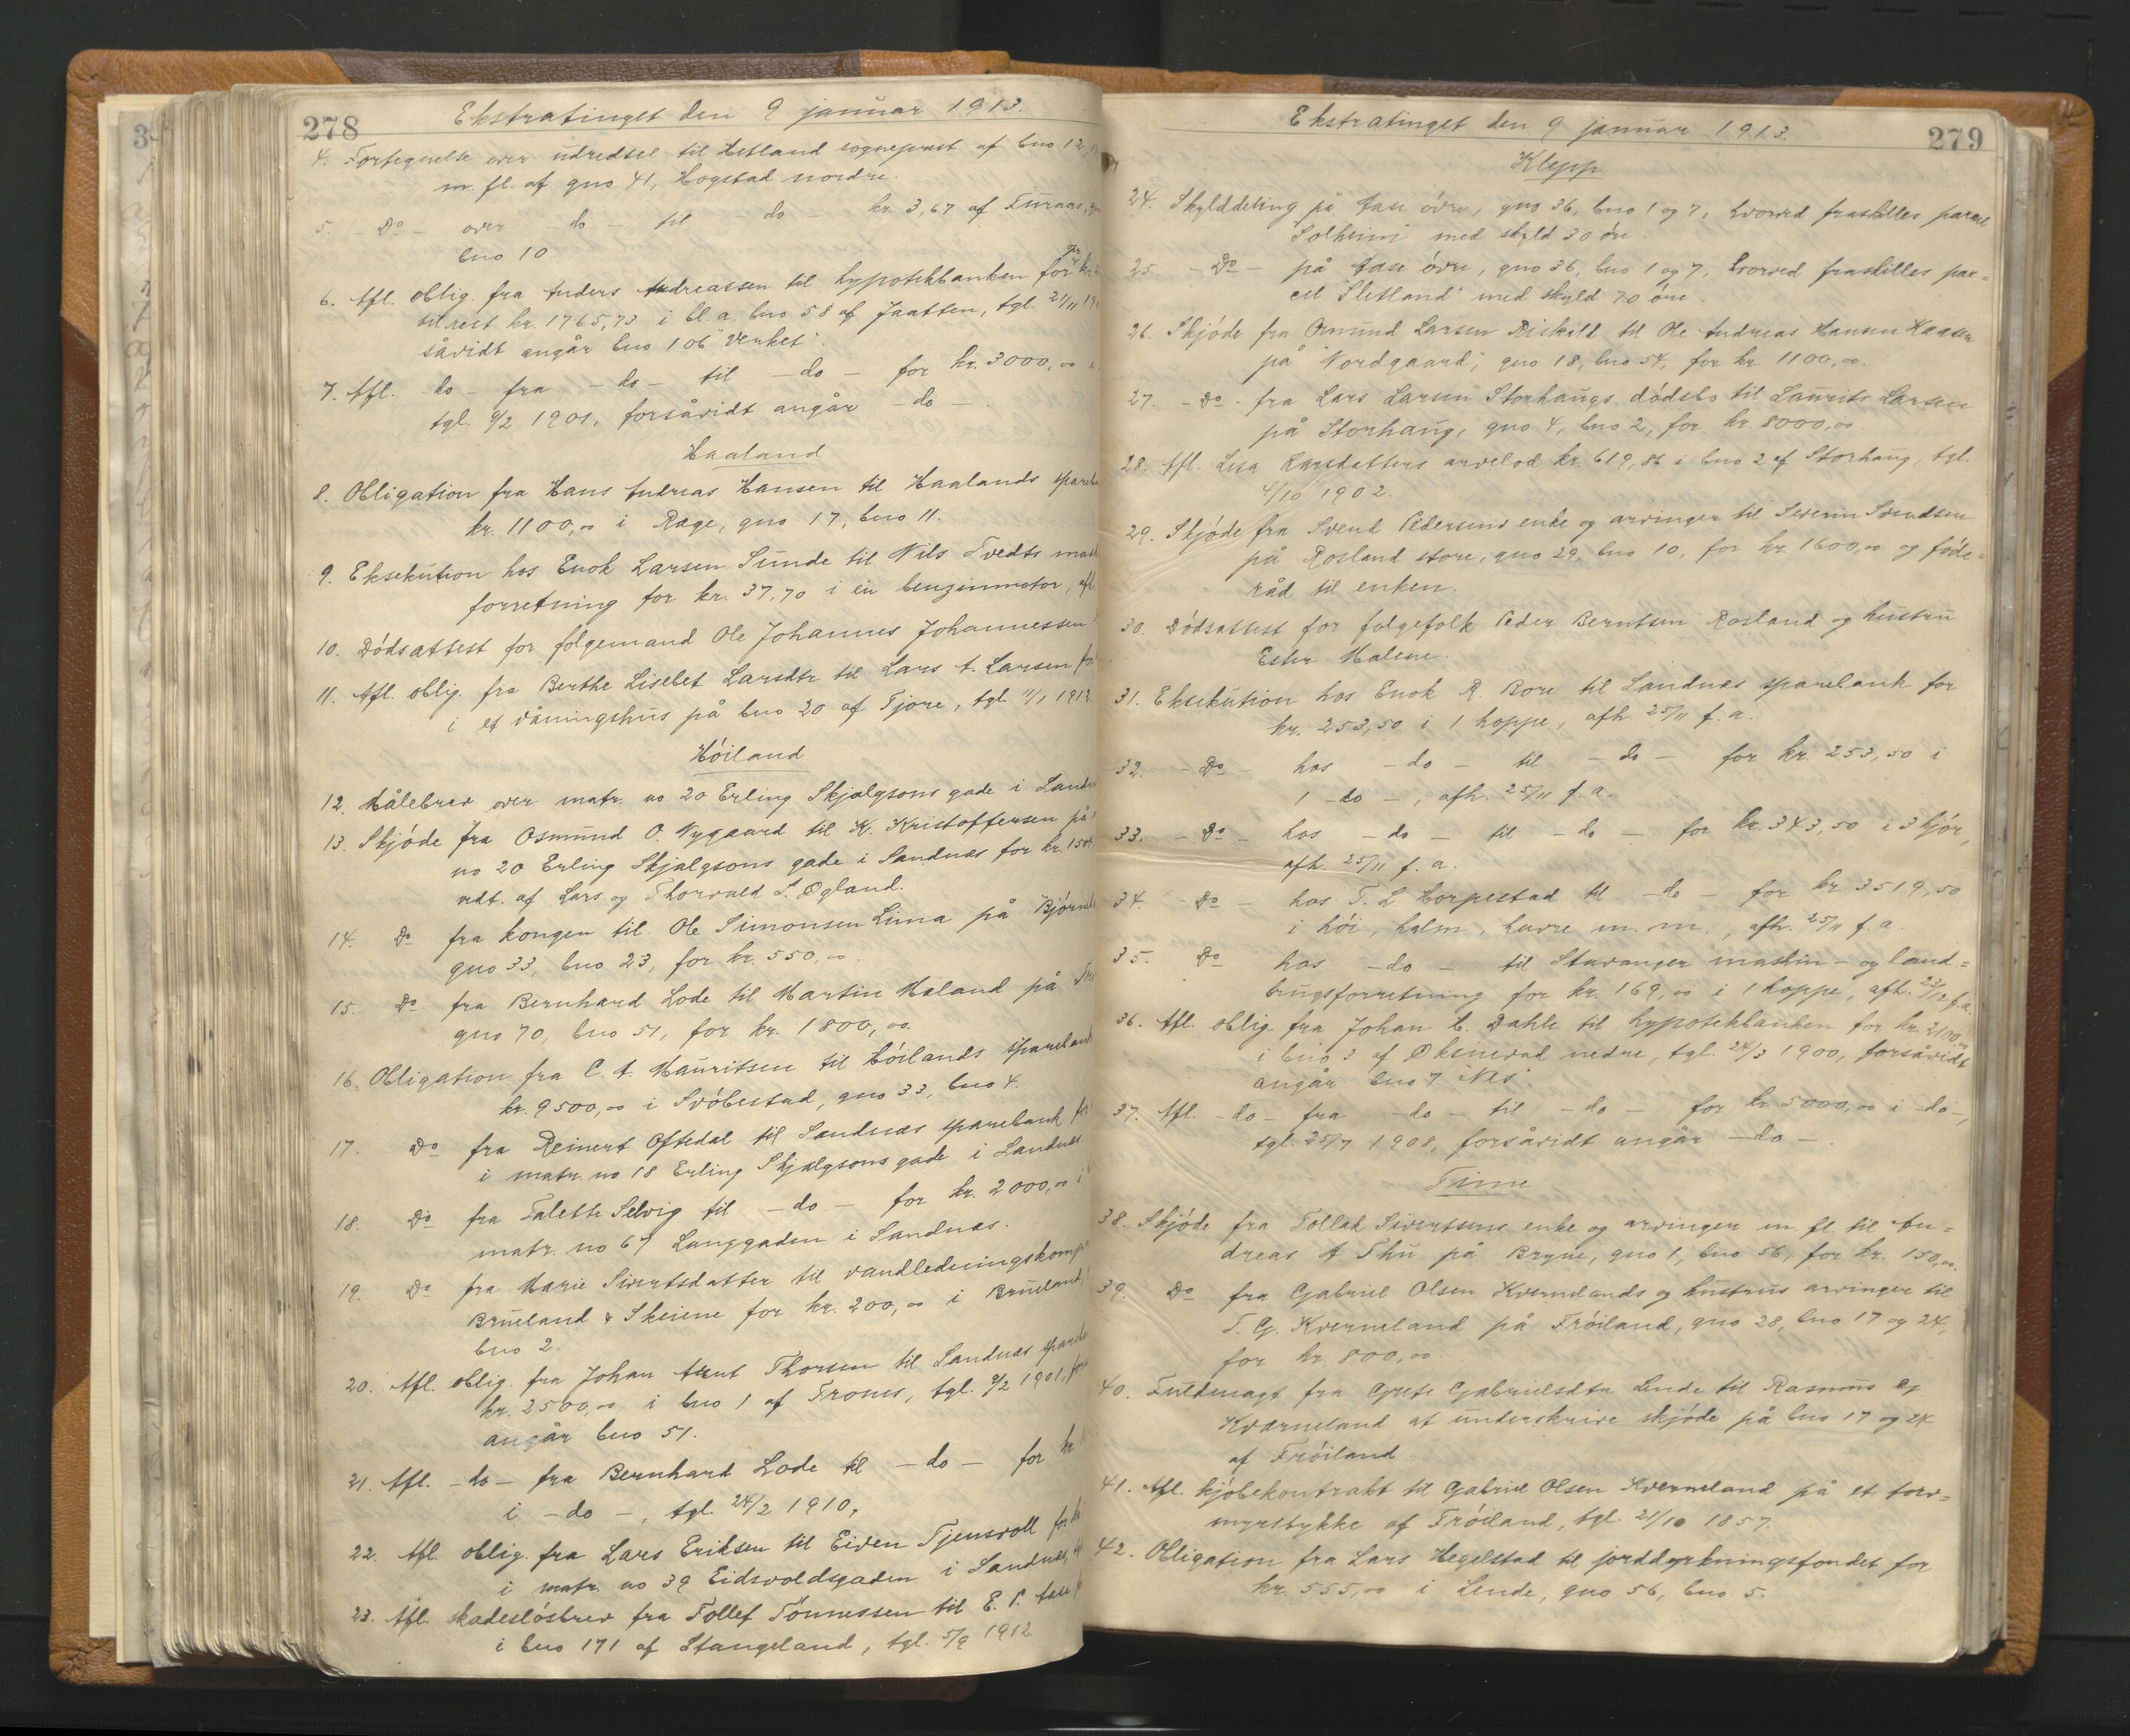 278
Ekstratinget den 9 januar 1913.
4. Fortegnelse over udredsel til Hetland sogneprest af bno 12,
m. fl. af gno 41, Hogstad nordre.
5. - Do - over - do - til - do - kr. 3,67 af
bno 10.
6. Afl. oblig. fra Anders Andreassen til hypotekbanken for
til rest kr. 1765,73 i bl. a. bno 58 af Jaatten, tgl. 21/11
såvidt angår bno 106 "Verket".
7. Afl. - do - fra - do - til - do - for kr. 3000,00
tgl. 9/2 1901, forsåvidt angår - do -.
Haaland
8. Obligation fra Hans Andreas Hansen til Haalands
kr. 1100,00 i Ræge, gno 17, bno 11.
9. Eksekution hos Enok Larsen Sunde til Nils Tvedts
forretning for kr. 37,70 i en benzinmotor,
10. Dödsattest for folgemand Ole Johannes Johannessen
11. Afl. oblig. fra Berthe Lisebet Larsdtr til Lars A. Larsen
i et våningshus på bno 20 af Tjore, tgl. 11/1 1912
Höiland
12. Målebrev over matr. no 20 Erling Skjalgsons gade i
13. Skjöde fra Osmund O. Nygaard til K. Kristoffersen på
no 20 Erling Skjalgsons gade i Sandnæs for kr.
vdt. af Lars og Thorvald S. Øgland.
14. Do fra kongen til Ole Simonsen Lima på
gno 33, bno 23, for kr. 550,00
15. Do fra Bernhard Lode til Martin Maland på
gno 70, bno 51, for kr. 1800,00.
16. Obligation fra C. A. Mauritsen til Höilands sparebank
kr. 9500,00 i Svöbestad, gno 33, bno 4.
17. Do fra Reinert Oftedal til Sandnæs sparebank
i matr. no 18 Erling Skjalgsons gade i Sandnæs
18. Do fra Talette Selvig til - do - for kr. 2000,00 i
matr. no 67 Langgaden i Sandnæs.
19. Do fra Marie Sivertsdatter til
Brueland & Skeiene for kr. 200,00 i Brueland,
bno 2.
20. Afl. oblig. fra Johan Arnt Thorsen til Sandnæs
kr. 2500,00 i bno 1 af Trones, tgl. 9/2 1901,
angår bno 51.
21. Afl. - do - fra Bernhard Lode til - do - for kr
i - do -, tgl. 24/2 1910,
22. Afl. oblig. fra Lars Eriksen til Eiven Tjensvoll for
i matr. no 39 Eidsvoldsgaden i Sandnæs,
23. Afl. skadeslösbrev fra Tollef Tönnessen til E. P.
i bno 171 af Stangeland, tgl. 5/9 1912.
Ekstratinget den 9 januar 1913.
279
Klepp
24. Skylddeling på Aase övre, gno 36, bno 1 og 7, hvorved fraskilles parcel
Solheim med skyld 30 öre.
25. - Do - på Aase övre, gno 36, bno 1 og 7, hvorved fraskilles par=
cel "Sletland" med skyld 70 öre.
26. Skjöde fra Omund Larsen Riskild til Ole Andreas Hansen
på "Nordgaard", gno 18, bno 54, for kr. 1100,00.
27. - Do - fra Lars Larsen Storhaugs dödsbo til Laurits Larsen
på Storhaug, gno 4, bno 2, for kr. 8000,00
28. Afl. Lisa Larsdatters arvelod kr. 619,86 i bno 2 af Storhaug, tgl.
4/10 1902.
29. Skjöde fra Svend Pedersens enke og arvinger til Severin Svendsen
på Rosland store, gno 29, bno 10, for kr. 1600,00 og föde=
råd til enken.
30. Dödsattest for folgefolk Peder Berntsen Rosland og hustru
Ester Malene.
31. Eksekution hos Enok R. Bore til Sandnæs sparebank for
kr. 253,50 i 1 hoppe, afh. 25/11 f. a.
32. - Do - hos - do - til - do - for kr. 253,50 i
1 - do -, afh. 25/11 f. a.
33. - Do - hos - do - til - do - for kr. 343,50 i 3 kjör,
afh. 25/11 f. a.
34. - Do - hos T. L. Horpestad til - do - for kr. 3519,50
i höi, halm, havre m. m., afh. 25/11 f. a.
35. Do hos - do - til Stavanger maskin- og land=
brugsforretning for kr. 169,00 i 1 hoppe, afh. 23/12 f. a.
36. Afl. oblig. fra Johan C. Dahle til hypotekbanken for kr. 2100,00
i bno 3 af Øksnevad nedre, tgl. 24/3 1900, forsåvidt
angår bno 7 "Nes".
37. Afl. - do - fra - do - til - do - for kr. 5000,00 i - do -,
tgl. 25/7 1908, forsåvidt angår - do -.
Time
38. Skjöde fra Tollak Sivertsens enke og arvinger m. fl. til An=
dreas A Thu på Bryne, gno 1, bno 56, for kr. 150,00.
39. Do fra Gabriel Olsen Kvernelands og hustrus arvinger til
T. G. Kverneland på Fröiland, gno 28, bno 17 og 24,
for kr. 800,00
40. Fuldmagt fra Grete Gabrielsdtr Lende til Rasmus G.
Kverneland at underskrive skjöde på bno 17 og 24
af Fröiland
41. Afl. kjöbekontrakt til Gabriel Olsen Kverneland på et torv=
myrstykke af Fröiland, tgl. 21/10 1857.
42. Obligation fra Lars Hegelstad til jorddyrkningsfondet for
kr. 555,00 i Lende, gno 56, bno 5.